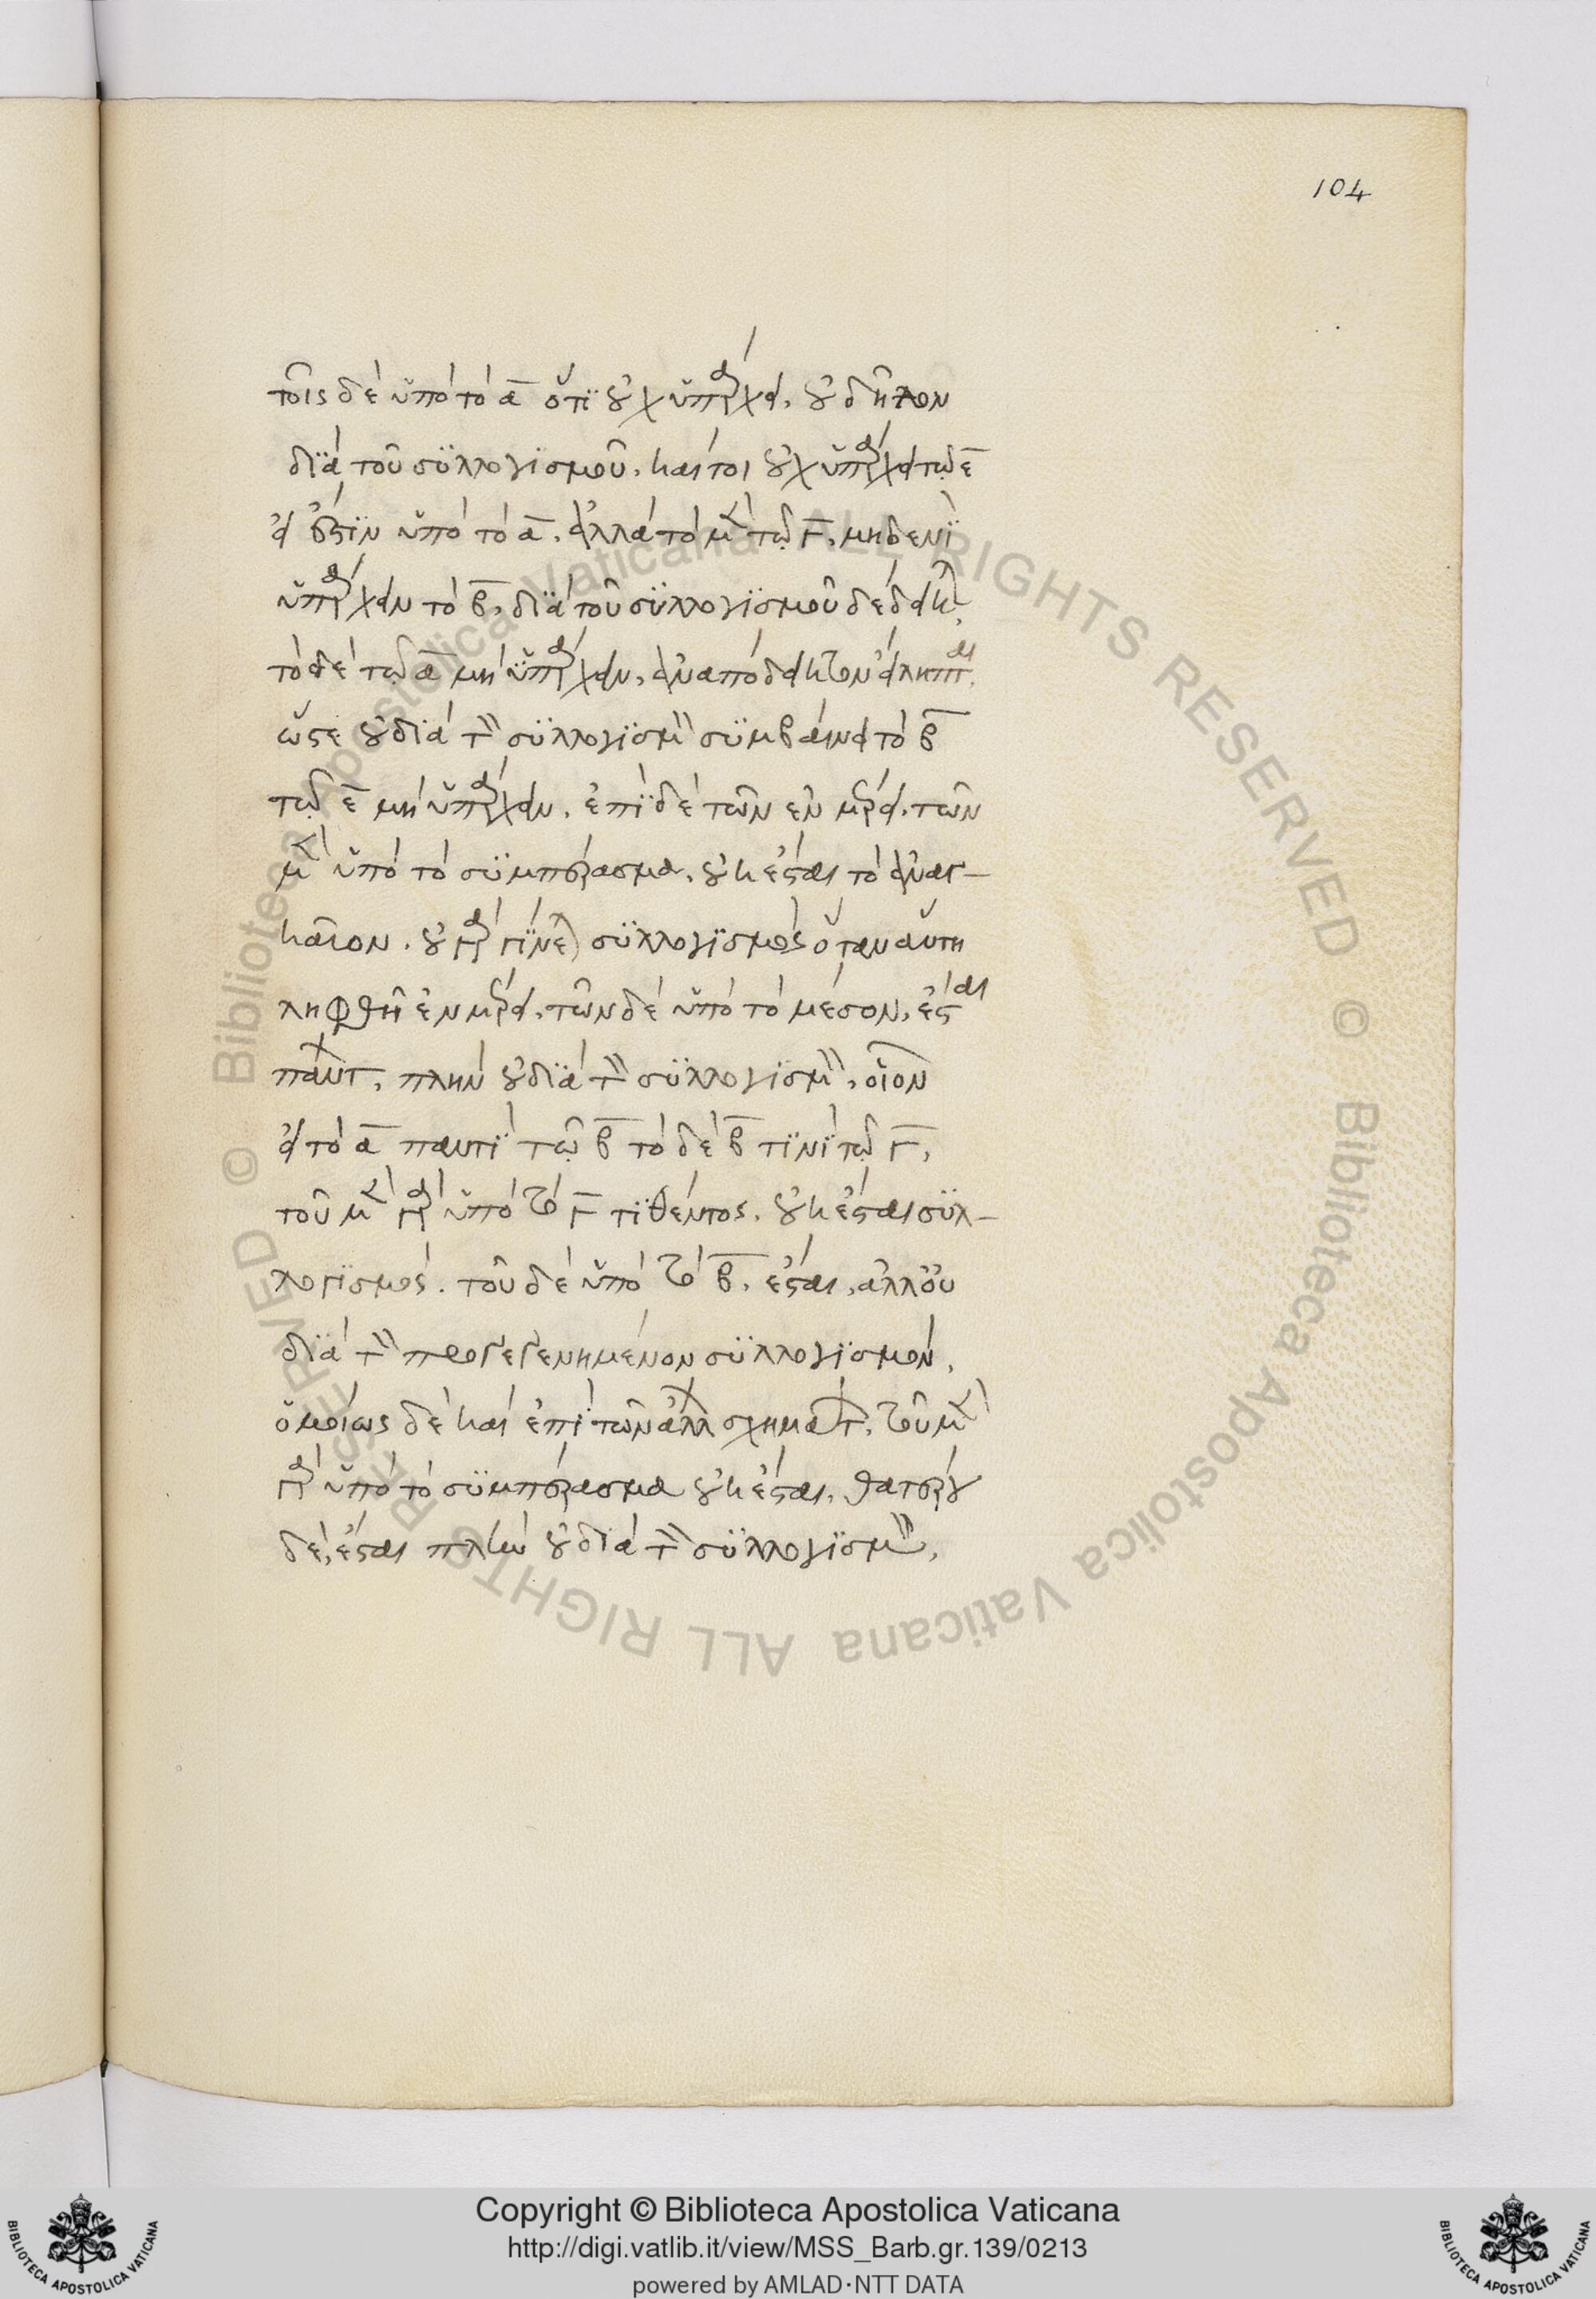 104
τοῖς δὲ ὑπὸ τὸ α ὅτι οὐχ ὑπάρχει, οὐ δῆλον
διὰ τοῦ συλλογισμοῦ. καίτοι οὐχ ὑπάρχει τῷ ε
εἰ ἔστιν ὑπὸ τὸ α. ἀλλὰ τὸ μὲν τῷ γ, μηδενὶ
ὑπάρχειν τὸ β, διὰ τοῦ συλλογισμοῦ δέδεικται,
τὸ δὲ τῷ α μὴ ὑπάρχειν, ἀναπόδεικτον εἴληπται,
ὥστε οὐ διὰ τὸν συλλογισμὸν συμβαίνει τὸ β
τῷ ε μὴ ὑπάρχειν. ἐπὶ δὲ τῶν ἐν μέρει, τῶν
μὲν ὑπὸ τὸ συμπέρασμα, οὐκ ἔσται τὸ ἀναγ-
καῖον. οὐ γὰρ γίνεται συλλογισμὸς ὅταν αὕτη
ληφθῇ ἐν μέρει. τῶν δὲ ὑπὸ τὸ μέσον, ἔσται
πάντων, πλὴν οὐ διὰ τὸν συλλογισμόν, οἷον
εἰ τὸ α παντὶ τῷ β τὸ δὲ β τινὶ τῷ γ,
τοῦ μὲν γὰρ ὑπὸ τὸ γ τιθέντος, οὐκ ἔσται συλ-
λογισμός. τοῦ δὲ ὑπὸ τὸ β, ἔσται, ἀλλ' οὐ
διὰ τὸν προγεγενημένον συλλογισμόν,
ὁμοίως δὲ καὶ ἐπὶ τῶν ἄλλων σχημάτων, τοῦ μὲν
γὰρ ὑπὸ τὸ συμπέρασμα οὐκ ἔσται, θατέρου
δέ, ἔσται πλὴν οὐ διὰ τὸν συλλογισμόν,
Copyright © Biblioteca Apostolica Vaticana
http://digi.vatlib.it/view/MSS_Barb.gr.139/0213
powered by AMLAD·NTT DATA
© Biblioteca Apostolica Vaticana ALL RIGHTS RESERVED © Biblioteca Apostolica Vaticana ALL RIGHTS RESERVED
BIBLIOTECA APOSTOLICA VATICANA
BIBLIOTECA APOSTOLICA VATICANA